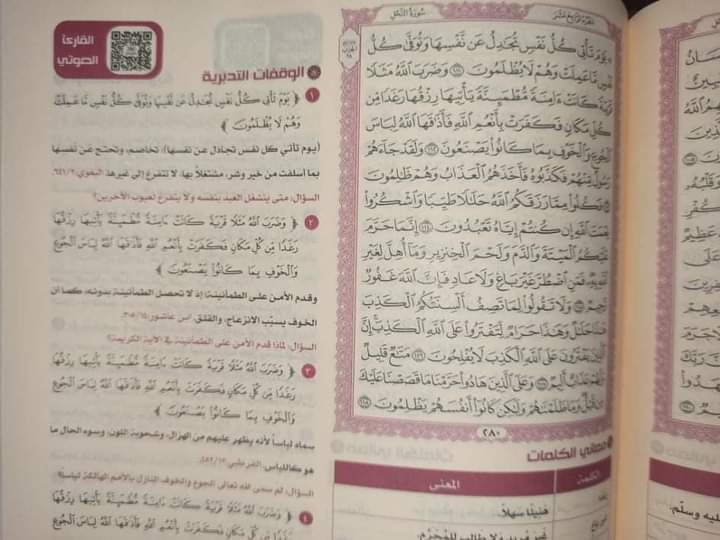 سُورَةُ النَّحْلِ
الجزء الرابع عشر
۞ يَوْمَ تَأْتِي كُلُّ نَفْسٍ تُجَادِلُ عَن نَّفْسِهَا وَتُوَفَّىٰ كُلُّ
نَفْسٍ مَّا عَمِلَتْ وَهُمْ لَا يُظْلَمُونَ ١١١ وَضَرَبَ اللَّهُ مَثَلًا
قَرْيَةً كَانَتْ ءَامِنَةً مُّطْمَئِنَّةً يَأْتِيهَا رِزْقُهَا رَغَدًا مِّن
كُلِّ مَكَانٍ فَكَفَرَتْ بِأَنْعُمِ اللَّهِ فَأَذَاقَهَا اللَّهُ لِبَاسَ
الْجُوعِ وَالْخَوْفِ بِمَا كَانُوا يَصْنَعُونَ ١١٢ وَلَقَدْ جَاءَهُمْ
رَسُولٌ مِّنْهُمْ فَكَذَّبُوهُ فَأَخَذَهُمُ الْعَذَابُ وَهُمْ ظَالِمُونَ
١١٣ فَكُلُوا مِمَّا رَزَقَكُمُ اللَّهُ حَلَالًا طَيِّبًا وَاشْكُرُوا
نِعْمَتَ اللَّهِ إِن كُنتُمْ إِيَّاهُ تَعْبُدُونَ ١١٤ إِنَّمَا حَرَّمَ
عَلَيْكُمُ الْمَيْتَةَ وَالدَّمَ وَلَحْمَ الْخِنزِيرِ وَمَا أُهِلَّ لِغَيْرِ
اللَّهِ بِهِ فَمَنِ اضْطُرَّ غَيْرَ بَاغٍ وَلَا عَادٍ فَإِنَّ اللَّهَ غَفُورٌ
رَّحِيمٌ ١١٥ وَلَا تَقُولُوا لِمَا تَصِفُ أَلْسِنَتُكُمُ الْكَذِبَ
هَٰذَا حَلَالٌ وَهَٰذَا حَرَامٌ لِّتَفْتَرُوا عَلَى اللَّهِ الْكَذِبَ إِنَّ
الَّذِينَ يَفْتَرُونَ عَلَى اللَّهِ الْكَذِبَ لَا يُفْلِحُونَ ١١٦ مَتَاعٌ قَلِيلٌ
وَلَهُمْ عَذَابٌ أَلِيمٌ ١١٧ وَعَلَى الَّذِينَ هَادُوا حَرَّمْنَا مَا قَصَصْنَا عَلَيْكَ
مِن قَبْلُ وَمَا ظَلَمْنَاهُمْ وَلَٰكِن كَانُوا أَنفُسَهُمْ يَظْلِمُونَ ١١٨
٢٨٠
معاني الكلمات
الكلمة المعنى
هَنِيئًا سَهلاً.
القارئ
الصوتي
الوقفات التدبرية
١ ﴿ يَوْمَ تَأْتِي كُلُّ نَفْسٍ تُجَادِلُ عَن نَّفْسِهَا وَتُوَفَّىٰ كُلُّ نَفْسٍ مَّا عَمِلَتْ
وَهُمْ لَا يُظْلَمُونَ ﴾
(يوم تأتي كل نفس تجادل عن نفسها): تخاصم، وتحتج عن نفسها
بما أسلفت من خير وشر، مشتغلاً بها، لا تتفرغ إلى غيرها. البغوي: ٦٤١/٢
السؤال: متى ينشغل العبد بنفسه ولا يتفرغ لعيوب الآخرين؟
٢ ﴿ وَضَرَبَ اللَّهُ مَثَلًا قَرْيَةً كَانَتْ ءَامِنَةً مُّطْمَئِنَّةً يَأْتِيهَا رِزْقُهَا
رَغَدًا مِّن كُلِّ مَكَانٍ فَكَفَرَتْ بِأَنْعُمِ اللَّهِ فَأَذَاقَهَا اللَّهُ لِبَاسَ الْجُوعِ
وَالْخَوْفِ بِمَا كَانُوا يَصْنَعُونَ ﴾
وقدم الأمن على الطمأنينة إذ لا تحصل الطمأنينة بدونه، كما أن
الخوف يسبب الانزعاج، والقلق. ابن عاشور: ٣٠٥/١٤
السؤال: لماذا قدم الأمن على الطمأنينة في الآية الكريمة؟
٣ ﴿ وَضَرَبَ اللَّهُ مَثَلًا قَرْيَةً كَانَتْ ءَامِنَةً مُّطْمَئِنَّةً يَأْتِيهَا رِزْقُهَا
رَغَدًا مِّن كُلِّ مَكَانٍ فَكَفَرَتْ بِأَنْعُمِ اللَّهِ فَأَذَاقَهَا اللَّهُ لِبَاسَ الْجُوعِ
وَالْخَوْفِ بِمَا كَانُوا يَصْنَعُونَ ﴾
سماه لباساً لأنه يظهر عليهم من الهزال، وشحوبة اللون، وسوء الحال ما
هو كاللباس. القرطبي:
السؤال: لم سمى الله تعالى الجوع والخوف النازل بالأمم الهالكة لباساً؟
٤ ﴿ وَضَرَبَ اللَّهُ مَثَلًا قَرْيَةً كَانَتْ ءَامِنَةً مُّطْمَئِنَّةً يَأْتِيهَا رِزْقُهَا
رَغَدًا مِّن كُلِّ مَكَانٍ فَكَفَرَتْ بِأَنْعُمِ اللَّهِ فَأَذَاقَهَا اللَّهُ لِبَاسَ الْجُوعِ